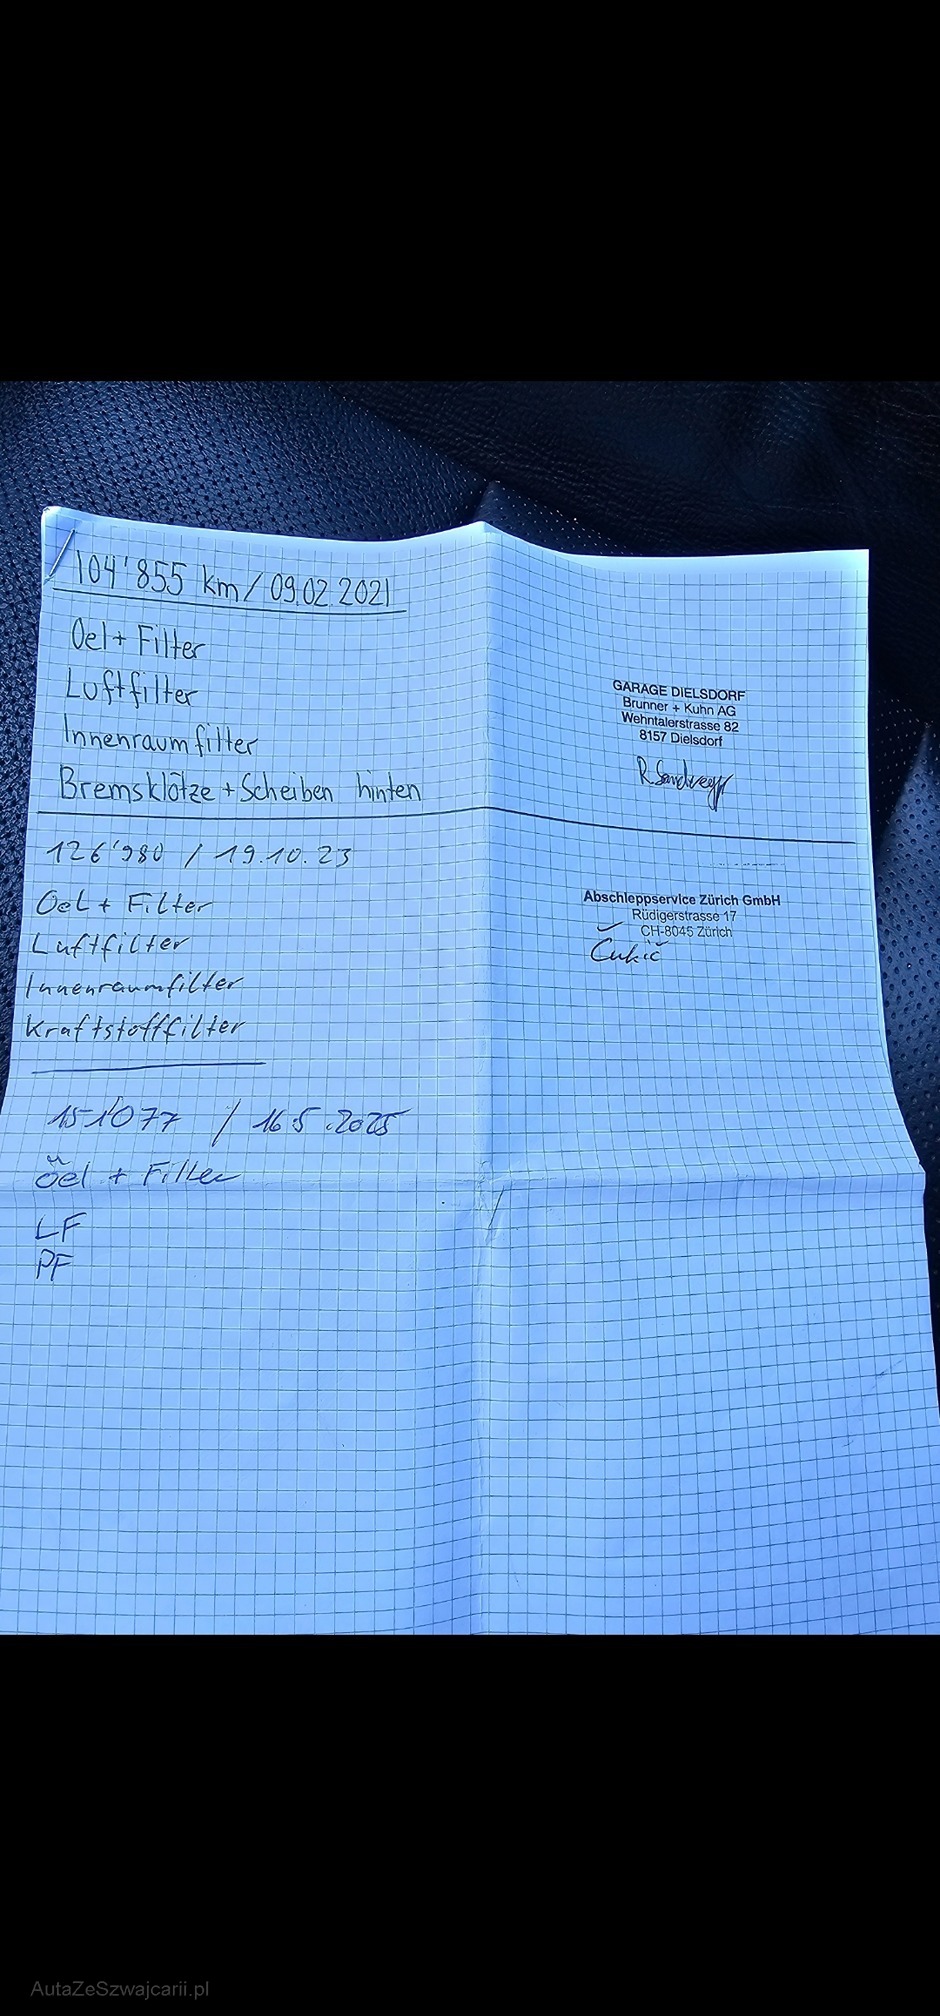 104'855 km / 09.02.2021
Oel + Filter
Luftfilter
Innenraumfilter
Bremsklötze + Scheiben hinten
GARAGE DIELSDORF
Brunner + Kuhn AG
Wehntalerstrasse 82
8157 Dielsdorf
126'980 / 19.10.23
Oel + Filter
Luftfilter
Innenraumfilter
Kraftstofffilter
Abschleppservice Zürich GmbH
Rüdigerstrasse 17
CH-8045 Zürich
Čukić
151'077 / 16.5.2025
Öel + Filter
LF
PF
AutaZeSzwajcarii.pl